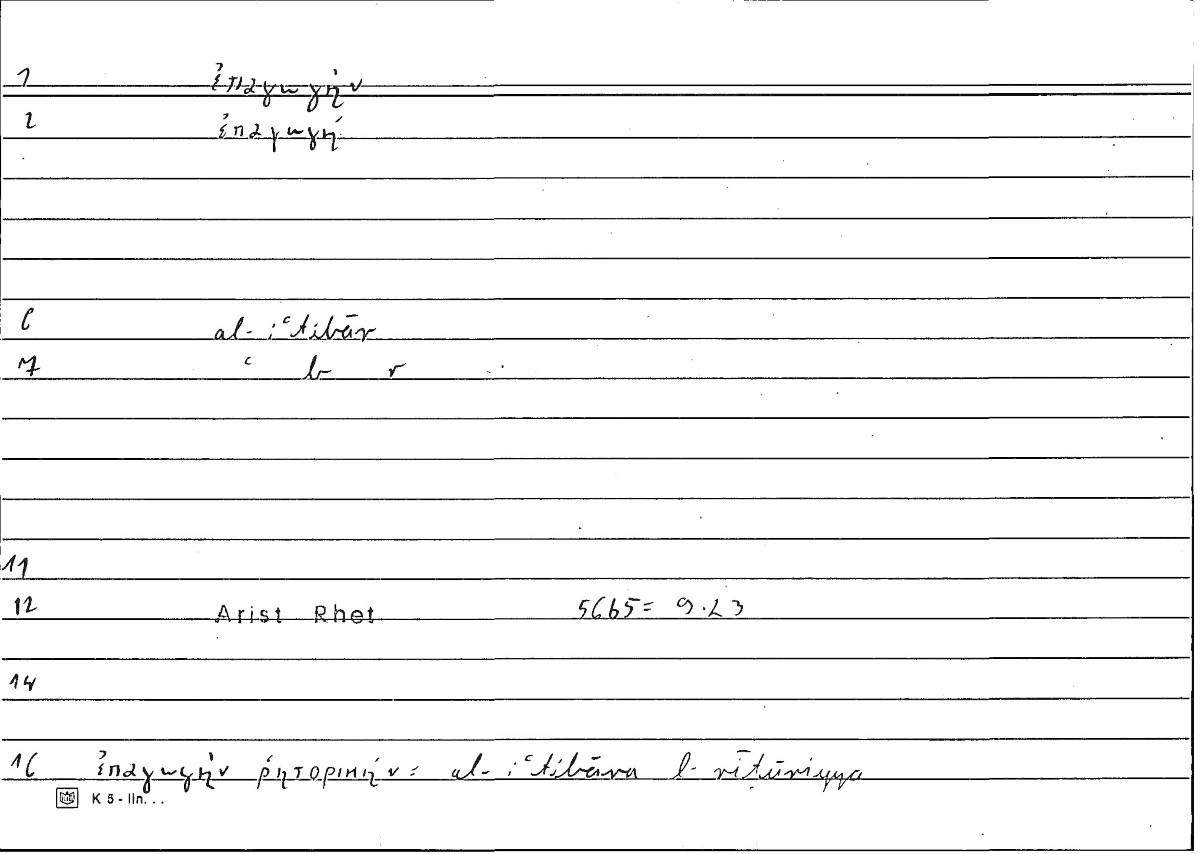 1 ἐπαγωγὴν
2 ἐπαγωγή
6 al-iʿtibār
7 ʿ b r
11
12 Arist Rhet 56b5= 9.23
14
16 ἐπαγωγὴν ῥητορικήν= al-iʿtibāra l-rīṭūriyya
K 5 - IIn. . .